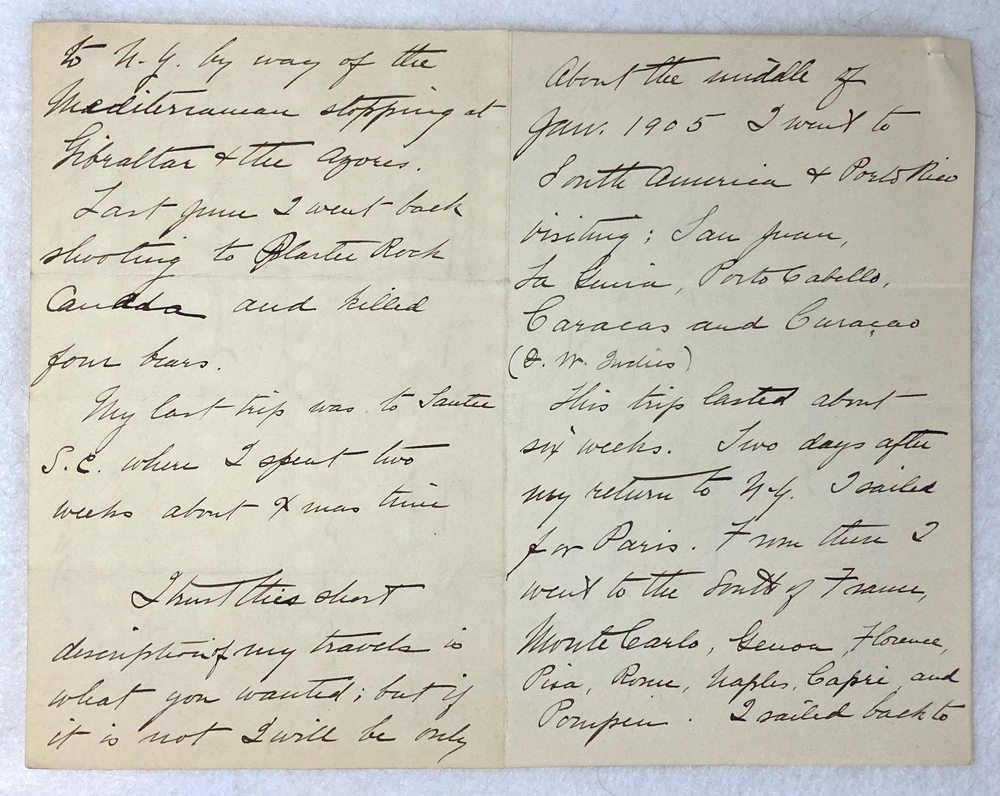 to N-Y. by way of the
Mediterranean stopping at
Gibraltar & the Azores.
Last June I went back
shooting to Plaster Rock
Canada and killed
four bears.
My last trip was to Santee
S.C. where I spent two
weeks about Xmas time
I trust this short
description of my travels is
what you wanted; but if
it is not I will be only
About the middle of
Jan. 1905 I went to
South America & Porto Rico
visiting: San Juan,
La Guira, Porto Cabello,
Caracas and Curaçao
(D. W. Indies)
This trip lasted about
six weeks. Two days after
my return to N-Y. I sailed
for Paris. From there I
went to the South of France,
Monte Carlo, Genoa, Florence,
Pisa, Rome, Naples, Capri, and
Pompeii. I sailed back to